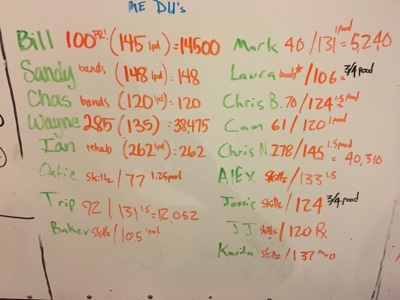 THE DU's
Bill 100 PR! (145 1pd) = 14500
Sandy bands (148 1pd) = 148
Chas bands (120 1pd) = 120
Wayne 285 (135) = 38475
Ian rehab (262 1pd) = 262
skillz / 77 1.25pood
Trip 92 / 131 1.5 = 12,052
Baker skillz / 105 1pood
Mark 40 / 131 1pood = 5,240
Laura bands / 106 = 3/4 pood
Chris B. 70 / 124 1.5
Cam 61 / 120 1pood
Chris N. 278 / 145 1.5pood = 40,310
AlEX skillz / 133 1.5
skillz / 124 3/4 pood
JJ skillz / 120 Rx
skillz / 137